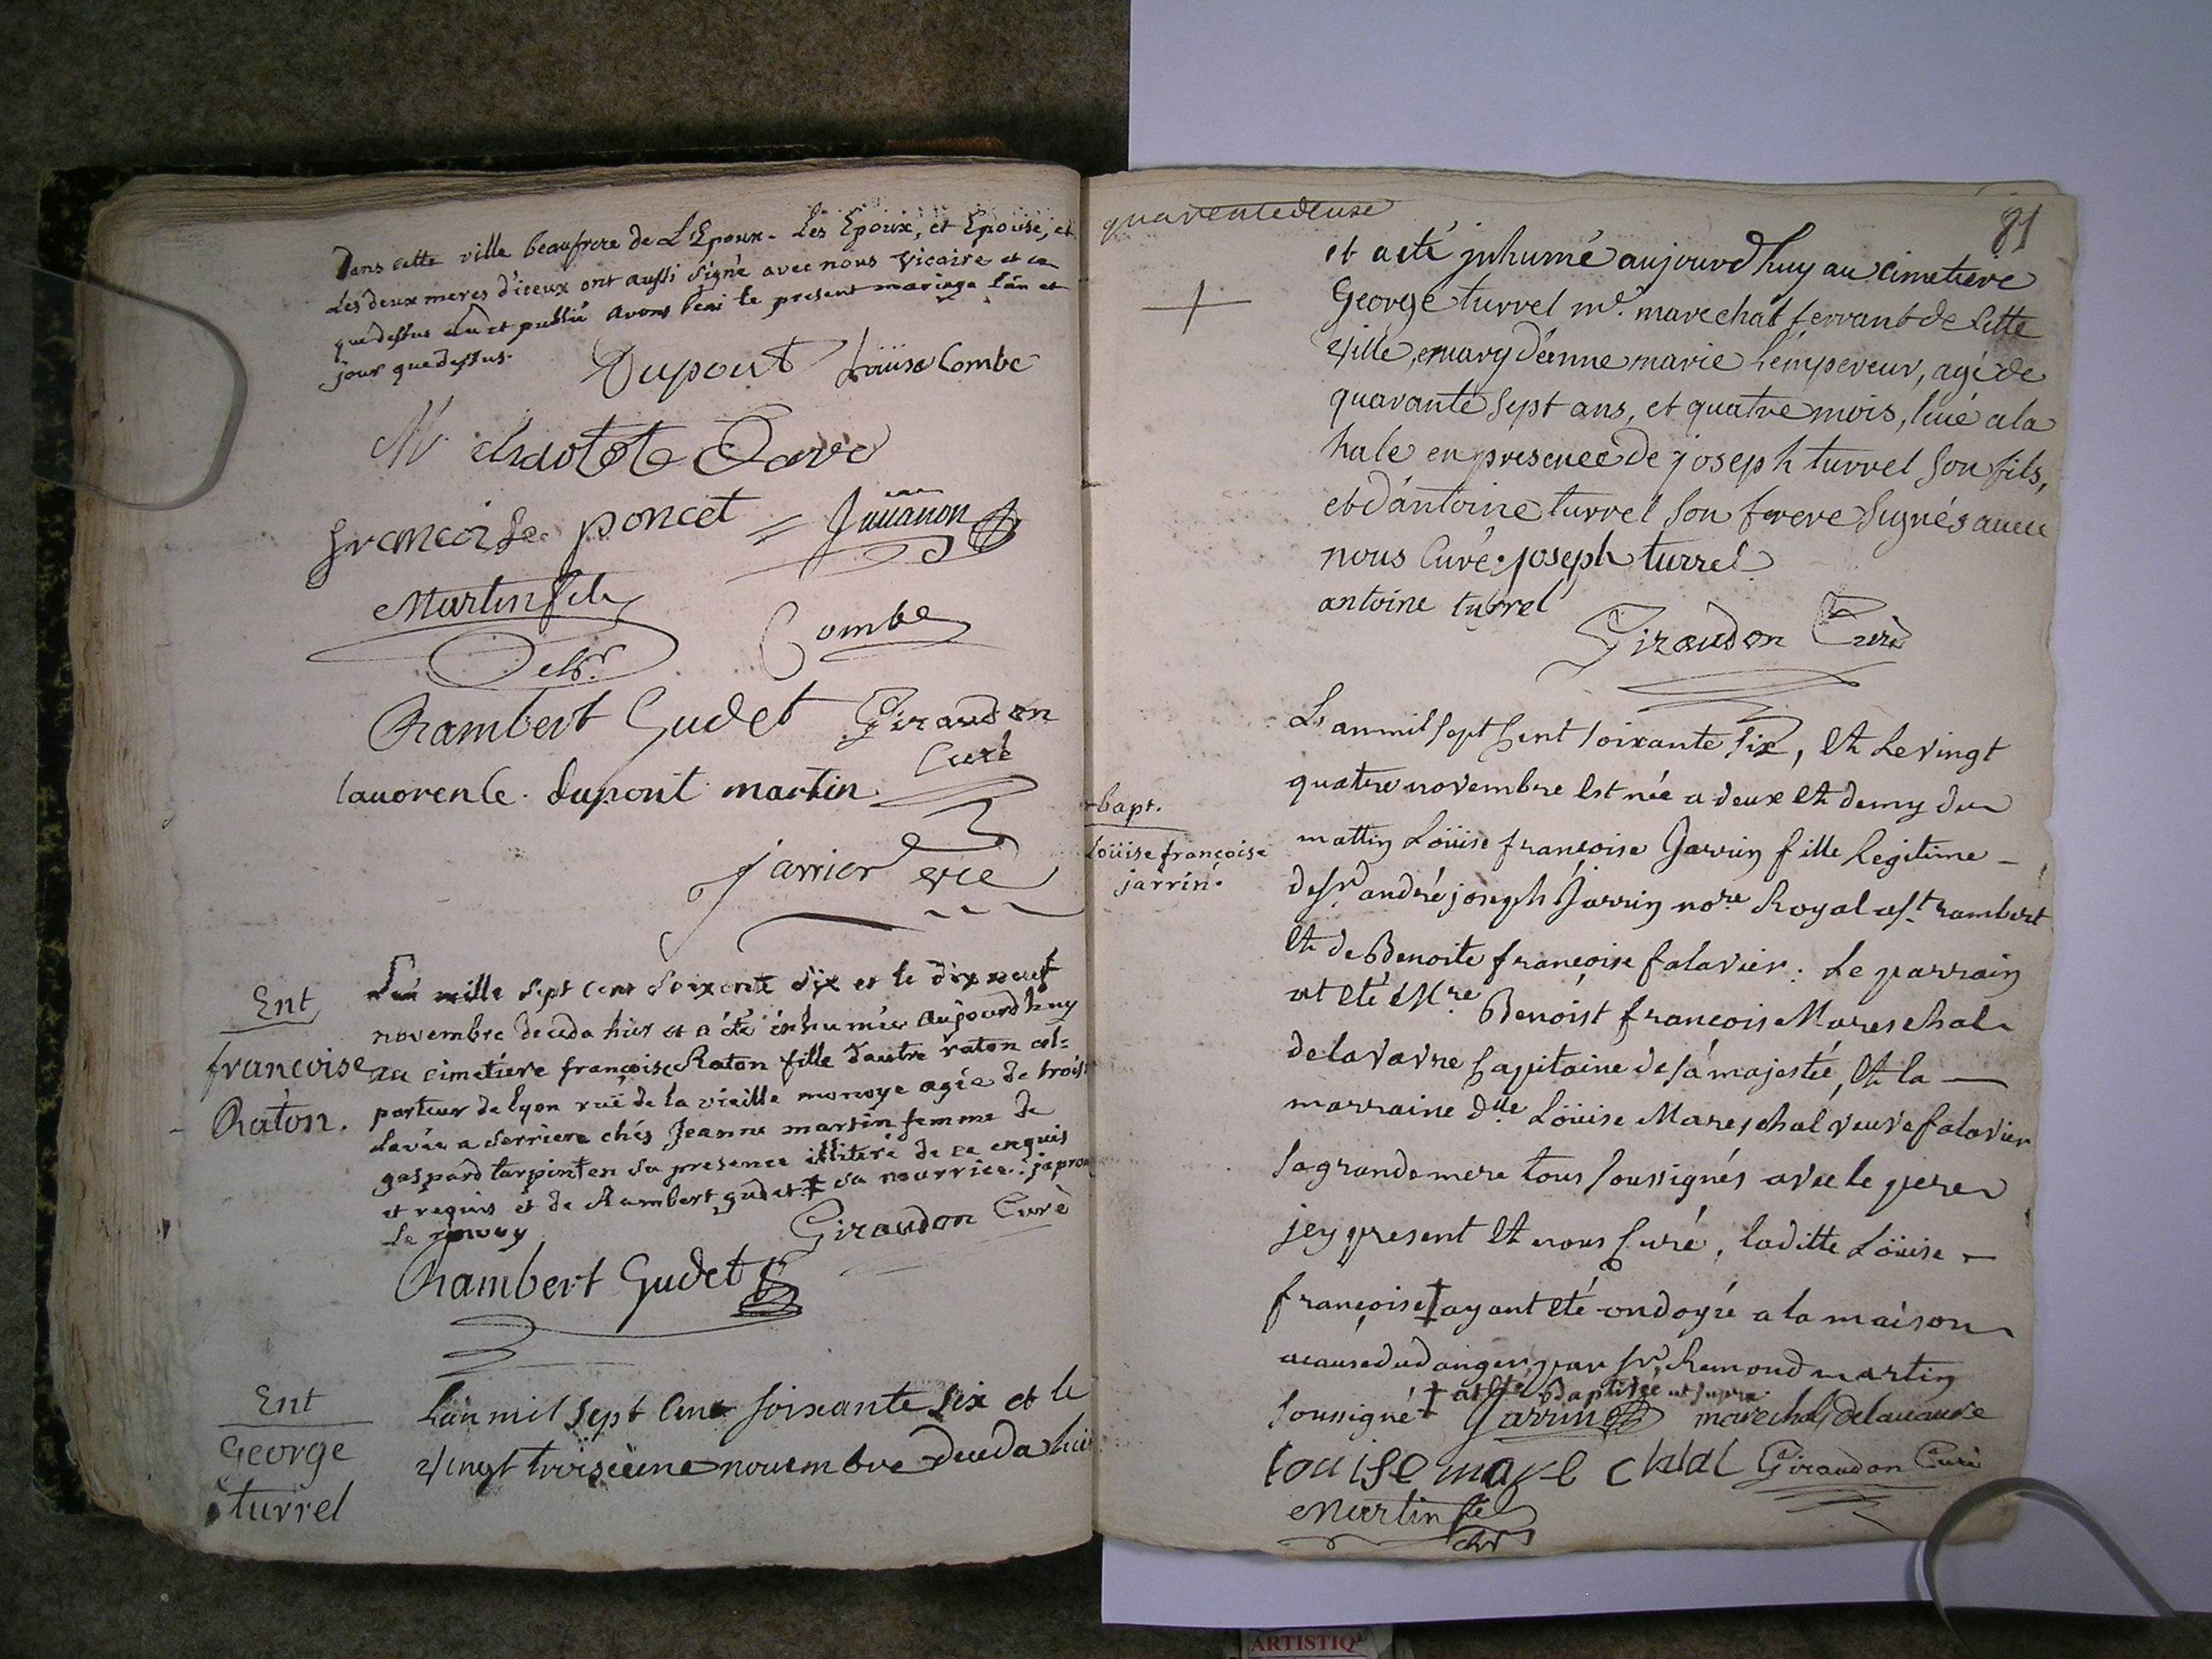 Dans cette ville beaufrere de L'Epoux. Les Epoux, et Epouse, et
Les deux meres d'iceux ont aussi signé avec nous vicaire et ce
que dessus lu et publié avons beni le present mariage l'an et
jour que dessus.
Dupont Loüise Combe
françoise poncet Jüuanon
Martin fils
Combe
Rambert Gudet Giraudon
Curé
lauorence dupont martin
jarrier vre
Ent
françoise
Raton.
L'an mille sept cent soixente six et le dix neuf
novembre deceda hier et a été inhumée aujourdhuy
au cimetiere françoise Raton fille dautre raton col=
porteur de lyon ruë de la vieille monoye agée de trois
Levée a derriere chés Jeanne martin femme de
gaspard tarpint en sa presence illitéré de ce enquis
et requis et de Rambert gudet ‡ sa nourrice
le renvoy
Giraudon Curé
Rambert Gudet
Ent
George
turrel
L'an mil sept cent soixante six et le
vingt troisieme nouembre deceda hier
quarentedeuse
81
et a eté jnhumé aujourdhuy au cimetiere
George turrel md. marechal ferrant de cette
ville, mary d'anne marie l'empereur, agé de
quarante sept ans, et quatre mois, leué a la
hale en presence de joseph turrel son fils,
et d'antoine turrel son frere signés auec
nous Curé. joseph turrel
antoine turrel
Giraudon Curé
bapt.
Loüise françoise
jarrin.
L'an mil sept Cent soixante six, Et Le vingt
quatre novembre Est née a deux Et demy du
mattin Loüise françoise Jarrin fille legitime
de Sr. andré joseph Jarrin nore Royal a St. rambert
Et de Benoite françoise falavier. Le parrain
at Eté Mre. Benoist francois Mareschal
delavavre Capitaine de sa majesté, Et la
marraine dlle Loüise Mareschal veuve falavier
sa grande mere tous soussignés avec le pere
jcy present Et nous Curé, laditte Loüise
françoise ‡ ayant Eté ondoyée a la maison
acause du danger par Sr. Remond martin
soussigné ‡ at Eté Baptisée ut supra.
Jarrin marechal delauaure
louise marechal Giraudon Curé
Martin fils
chr